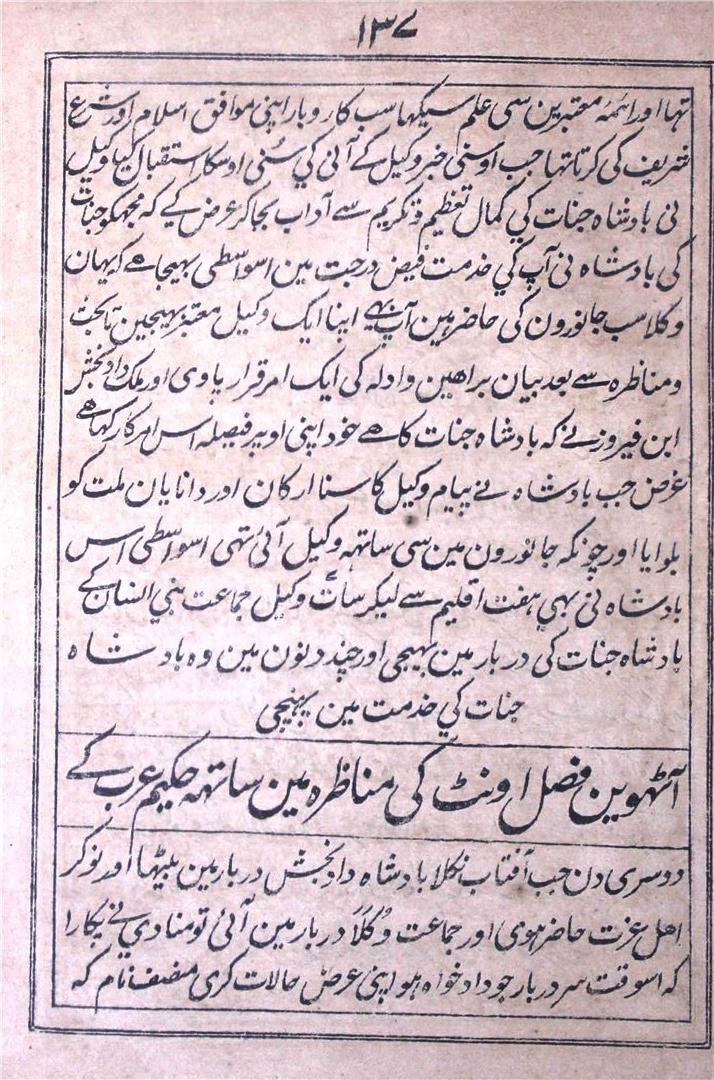 ١٣٧
تہا اور ائمہ معتبرین سی علم سیکہا سب کاروبار اپنی موافق اسلام اور شرع
شریف کی کرتا تہا جب اوسنی خبر وکیل کے آنی کي سُنی اوسکا استقبال کیا وکیل
نی بادشاہ جنات کي کمال تعظیم و تکریم سے آداب بجا کر عرض کیے کہ مجہکو جنات
کی بادشاہ نی آپ کي خدمت فیض درجت مین اسواسطی بہیجا ھے کہ یہان
وکلا سب جانورون کی حاضر ہین آپ بہي اپنا ایک وکیل معتبر بہیجین تا بحث
و مناظرہ سے بعد بیان براھین و ادلہ کی ایک امر قرار پاوی اور ملک دادبخش
ابن فیروز نے کہ بادشاہ جنات کا ھے خود اپنی اوپر فیصلہ اس امر کا رکہا ھے
غرض جب بادشاہ نے پیام وکیل کا سنا ارکان اور دانایان ملت کو
بلوایا اور چونکہ جانورون مین سی ساتہہ وکیل آئی تہی اسواسطی اس
بادشاہ نی بہي ہفت اقلیم سے لیکر سات وکیل جماعت بني انسان کے
پادشاہ جنات کی دربار مین بہیجی اور چند دنون مین وہ بادشاہ
جنات کي خدمت مین پہنچی
آٹہوین فصل اونٹ کی مناظرہ مین ساتہہ حکیم عرب کے
دوسری دن جب آفتاب نکلا بادشاہ دادبخش دربار مین بیٹہا اور نوکر
اھل عزت حاضر ہوی اور جماعت وُکَلَا دربار مین آئی تو منادي نے پکارا
کہ اسوقت سر دربار جو دادخواہ ہو اپنی عرض حالات کری منصف نام کہ